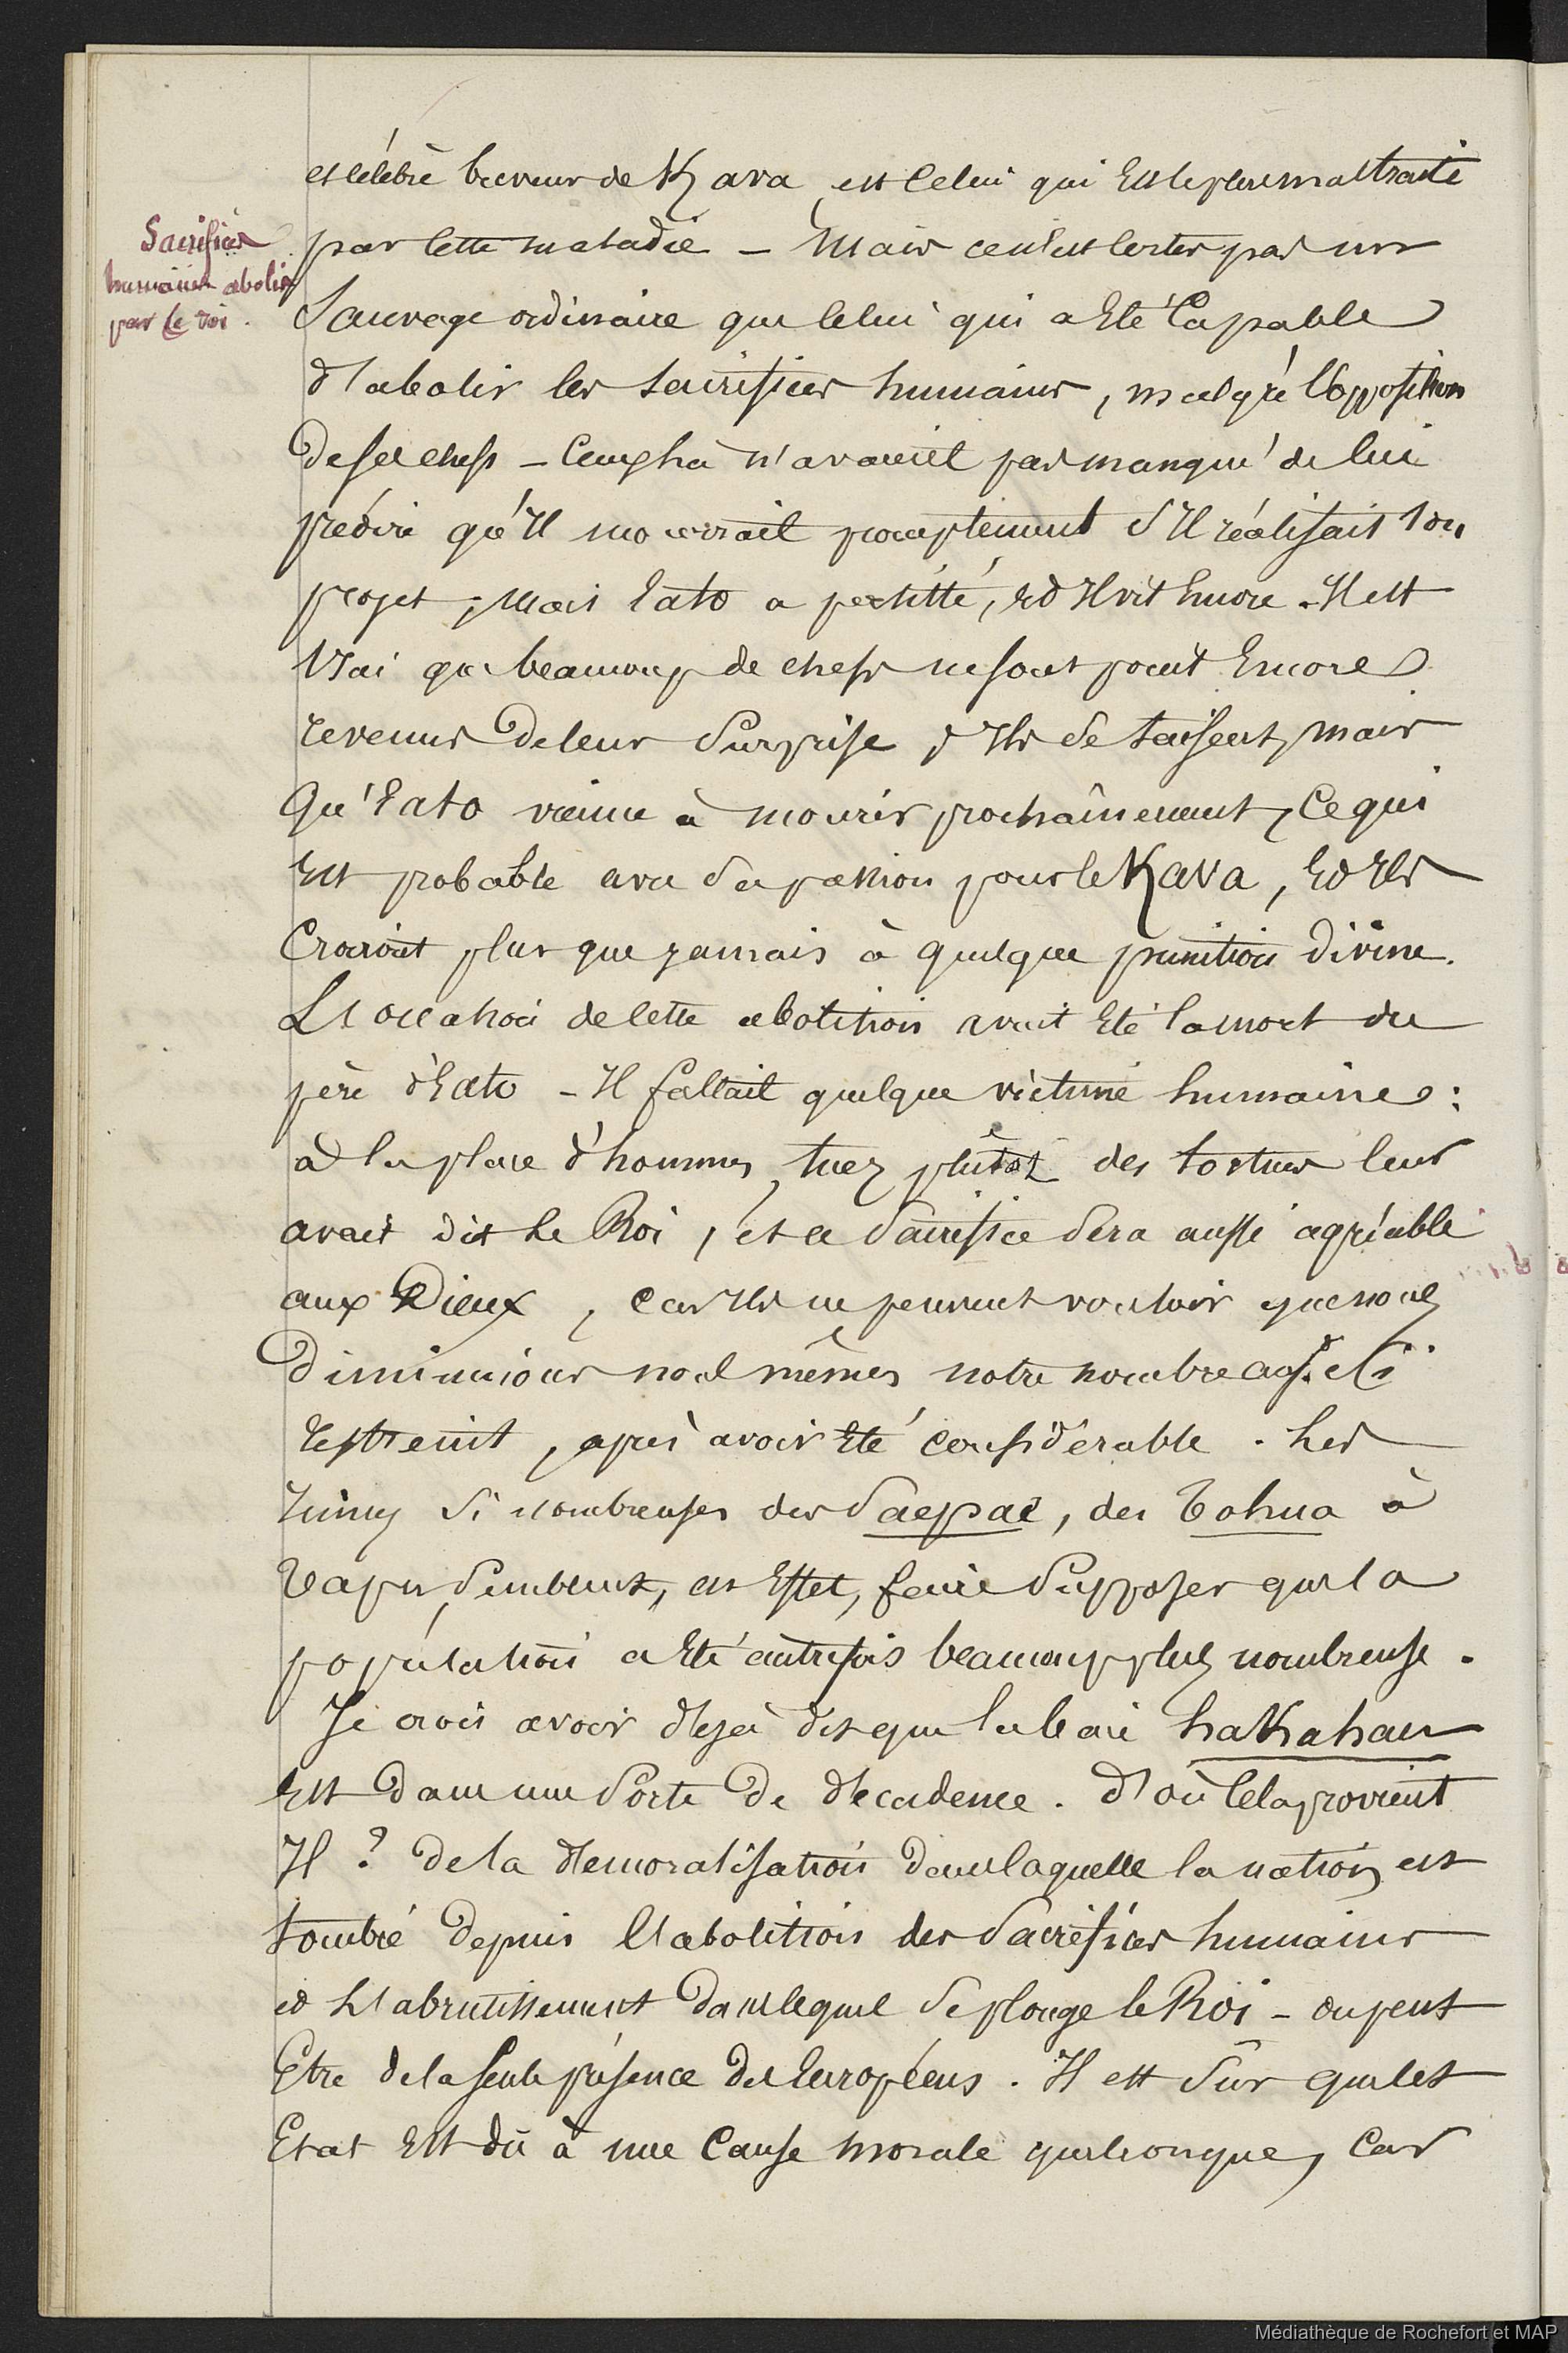 Sacrifices
humains abolis
par le roi.
et célèbre buveur de Kava, est celui qui Est le plus maltraité
par cette maladie – Mais ce n'est certes pas un
Sauvage ordinaire que celui qui a Eté Capable
d'abolir les sacrifices humains, malgré l'opposition
de ses chefs – Ceux là n'avaient pas manqué de lui
prédire qu'Il mourrait promptement S'Il réalisait son
projet ; Mais Eato a persisté, Et Il vit Encore. Il est
Vrai que beaucoup de chefs ne sont point Encore
revenus de leur Surprise ; Ils Se taisent, mais
Qu'Eato vienne à mourir prochaînement, Ce qui
Est probable avec Sa passion pour le Kava, Et Ils
Croiront plus que jamais à quelque punition Divine.
L'occasion de cette abolition avait Eté la mort du
père d'Eato – Il fallait quelque victime humaine :
à la place d'hommes, tuez plûtot des tortues leur
avait dit le Roi, et ce Sacrifice Sera aussi agréable
aux Dieux, car Ils ne peuvent vouloir que nous
Diminuions nous mêmes notre nombre aussi
restreint, après avoir Eté considérable. Les
ruines Si nombreuses des Paepae, des Tohua à
Vapu Semblent, en Effet, faire Supposer que la
population a Eté autrefois beaucoup plus nombreuse.
Je crois avoir déjà dit que la baie hakahau
Est Dans une Sorte De décadence. D'où Cela provient
Il ? de la démoralisation Dans laquelle la nation est
tombée Depuis l'abolition des Sacrifices humains
et L'abrutissement Dans lequel Se plonge le Roi – ou peut
Etre de la Seule présence des Européens. Il est Sûr que cet
Etat Est dû à une Cause morale quelconque, Car
Médiathèque de Rochefort et MAP